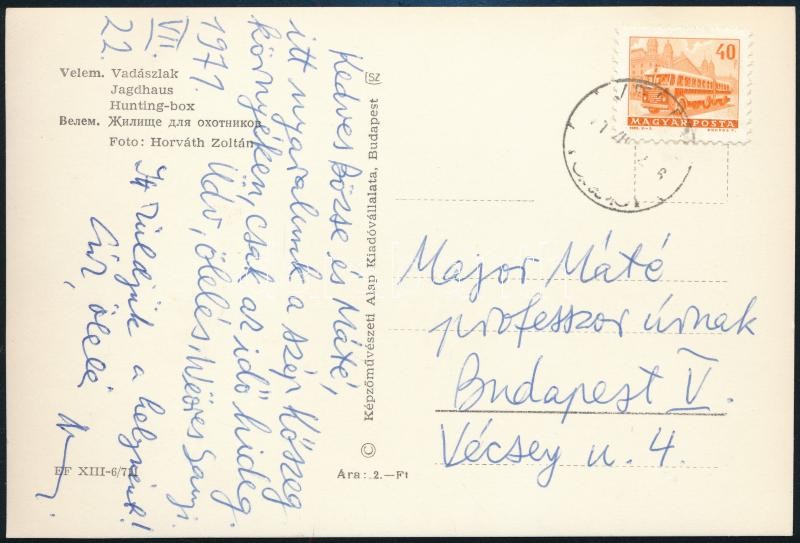 Velem. Vadászlak
Jagdhaus
Hunting-box
Велем. Жилище для охотников
Foto: Horváth Zoltán
Kedves Bözse és Máté,
itt nyaralunk a szép Kőszeg
környékén, csak az idő hideg.
Üdv, ölelés, Weöres Sanyi.
1971.
VII.
22.
Itt küldjük a helyszínt!
ölelés
EF XIII-6/711
© Képzőművészeti Alap Kiadóvállalata, Budapest (SZ
Ára: 2.—Ft
40
MAGYAR POSTA
Major Máté
professzor úrnak
Budapest V.
Vécsey u. 4.